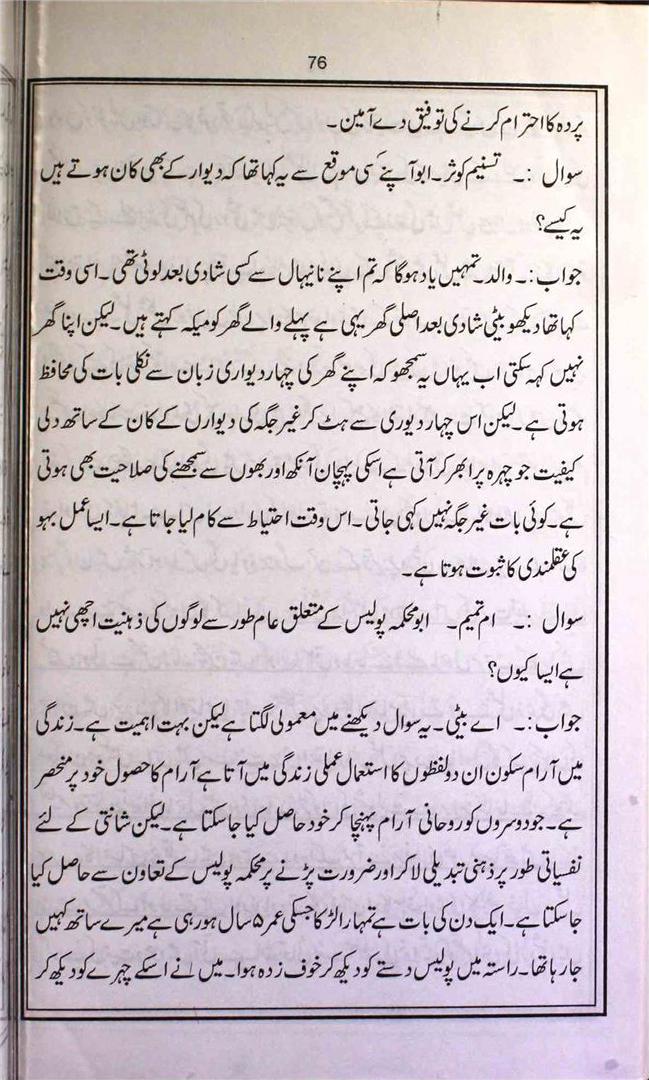 76
پردہ کا احترام کرنے کی توفیق دے آمین۔
سوال :۔ تسنیم کوثر۔ ابو آپنے کسی موقع سے یہ کہا تھا کہ دیوار کے بھی کان ہوتے ہیں
یہ کیسے؟
جواب :۔ والد۔ تمہیں یاد ہوگا کہ تم اپنے نانیہال سے کسی شادی بعد لوٹی تھی۔ اسی وقت
کہا تھا دیکھو بیٹی شادی بعد اصلی گھر یہی ہے پہلے والے گھر کو میکہ کہتے ہیں۔ لیکن اپنا گھر
نہیں کہہ سکتی اب یہاں یہ سمجھو کہ اپنے گھر کی چہار دیواری زبان سے نکلی بات کی محافظ
ہوتی ہے۔ لیکن اس چہار دیوری سے ہٹ کر غیر جگہ کی دیوارں کے کان کے ساتھ دلی
کیفیت جو چہرہ پر ابھر کر آتی ہے اسکی پہچان آنکھ اور بھوں سے سمجھنے کی صلاحیت بھی ہوتی
ہے۔ کوئی بات غیر جگہ نہیں کہی جاتی۔ اس وقت احتیاط سے کام لیا جاتا ہے۔ ایسا عمل بہو
کی عقلمندی کا ثبوت ہوتا ہے۔
سوال :۔ ام تمیم۔ ابو محکمہ پولیس کے متعلق عام طور سے لوگوں کی ذہنیت اچھی نہیں
ہے ایسا کیوں؟
جواب :۔ اے بیٹی۔ یہ سوال دیکھنے میں معمولی لگتا ہے لیکن بہت اہمیت ہے۔ زندگی
میں آرام سکون ان دو لفظوں کا استعمال عملی زندگی میں آتا ہے آرام کا حصول خود پر منحصر
ہے۔ جو دوسروں کو روحانی آرام پہنچا کر خود حاصل کیا جا سکتا ہے۔ لیکن شانتی کے لئے
نفسیاتی طور پر ذہنی تبدیلی لا کر اور ضرورت پڑنے پر محکمہ پولیس کے تعاون سے حاصل کیا
جا سکتا ہے۔ ایک دن کی بات ہے تمہارا لڑکا جسکی عمر ۵ سال ہو رہی ہے میرے ساتھ کہیں
جا رہا تھا۔ راستہ میں پولیس دستے کو دیکھ کر خوف زدہ ہوا۔ میں نے اسکے چہرے کو دیکھ کر